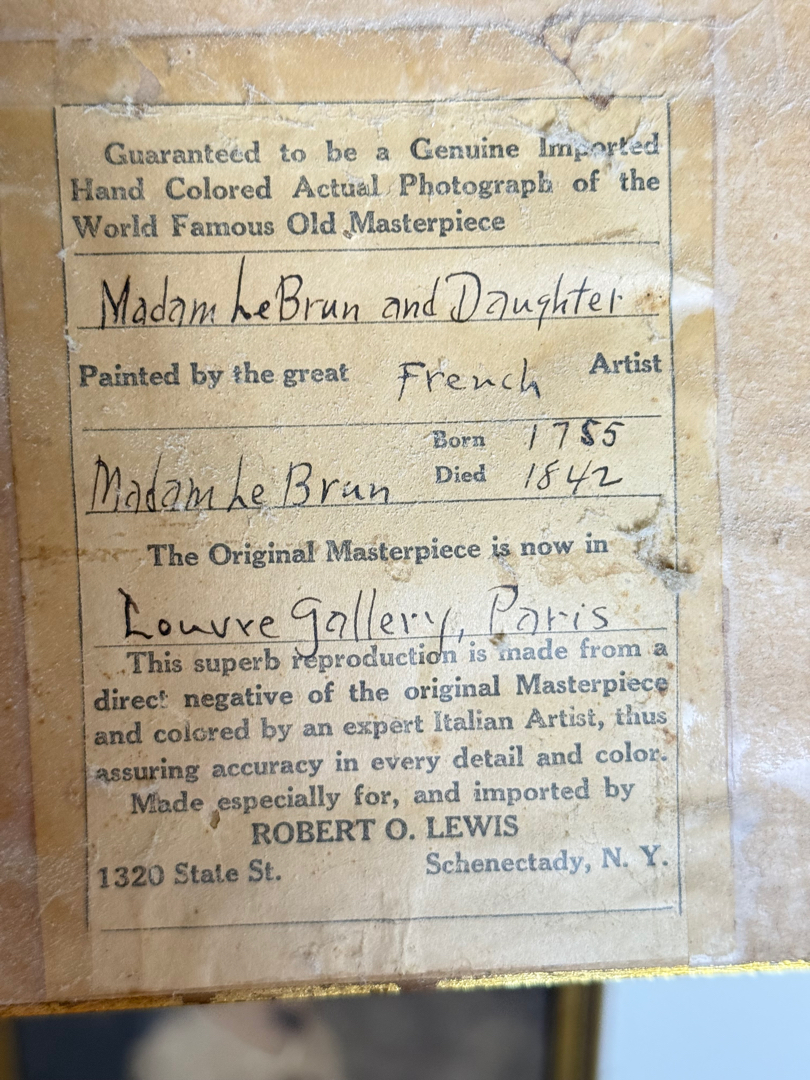 Guaranteed to be a Genuine Imported
Hand Colored Actual Photograph of the
World Famous Old Masterpiece
Madam Le Brun and Daughter
Painted by the great French Artist
Born 1755
Madam Le Brun Died 1842
The Original Masterpiece is now in
Louvre Gallery, Paris
This superb reproduction is made from a
direct negative of the original Masterpiece
and colored by an expert Italian Artist, thus
assuring accuracy in every detail and color.
Made especially for, and imported by
ROBERT O. LEWIS
1320 State St. Schenectady, N. Y.